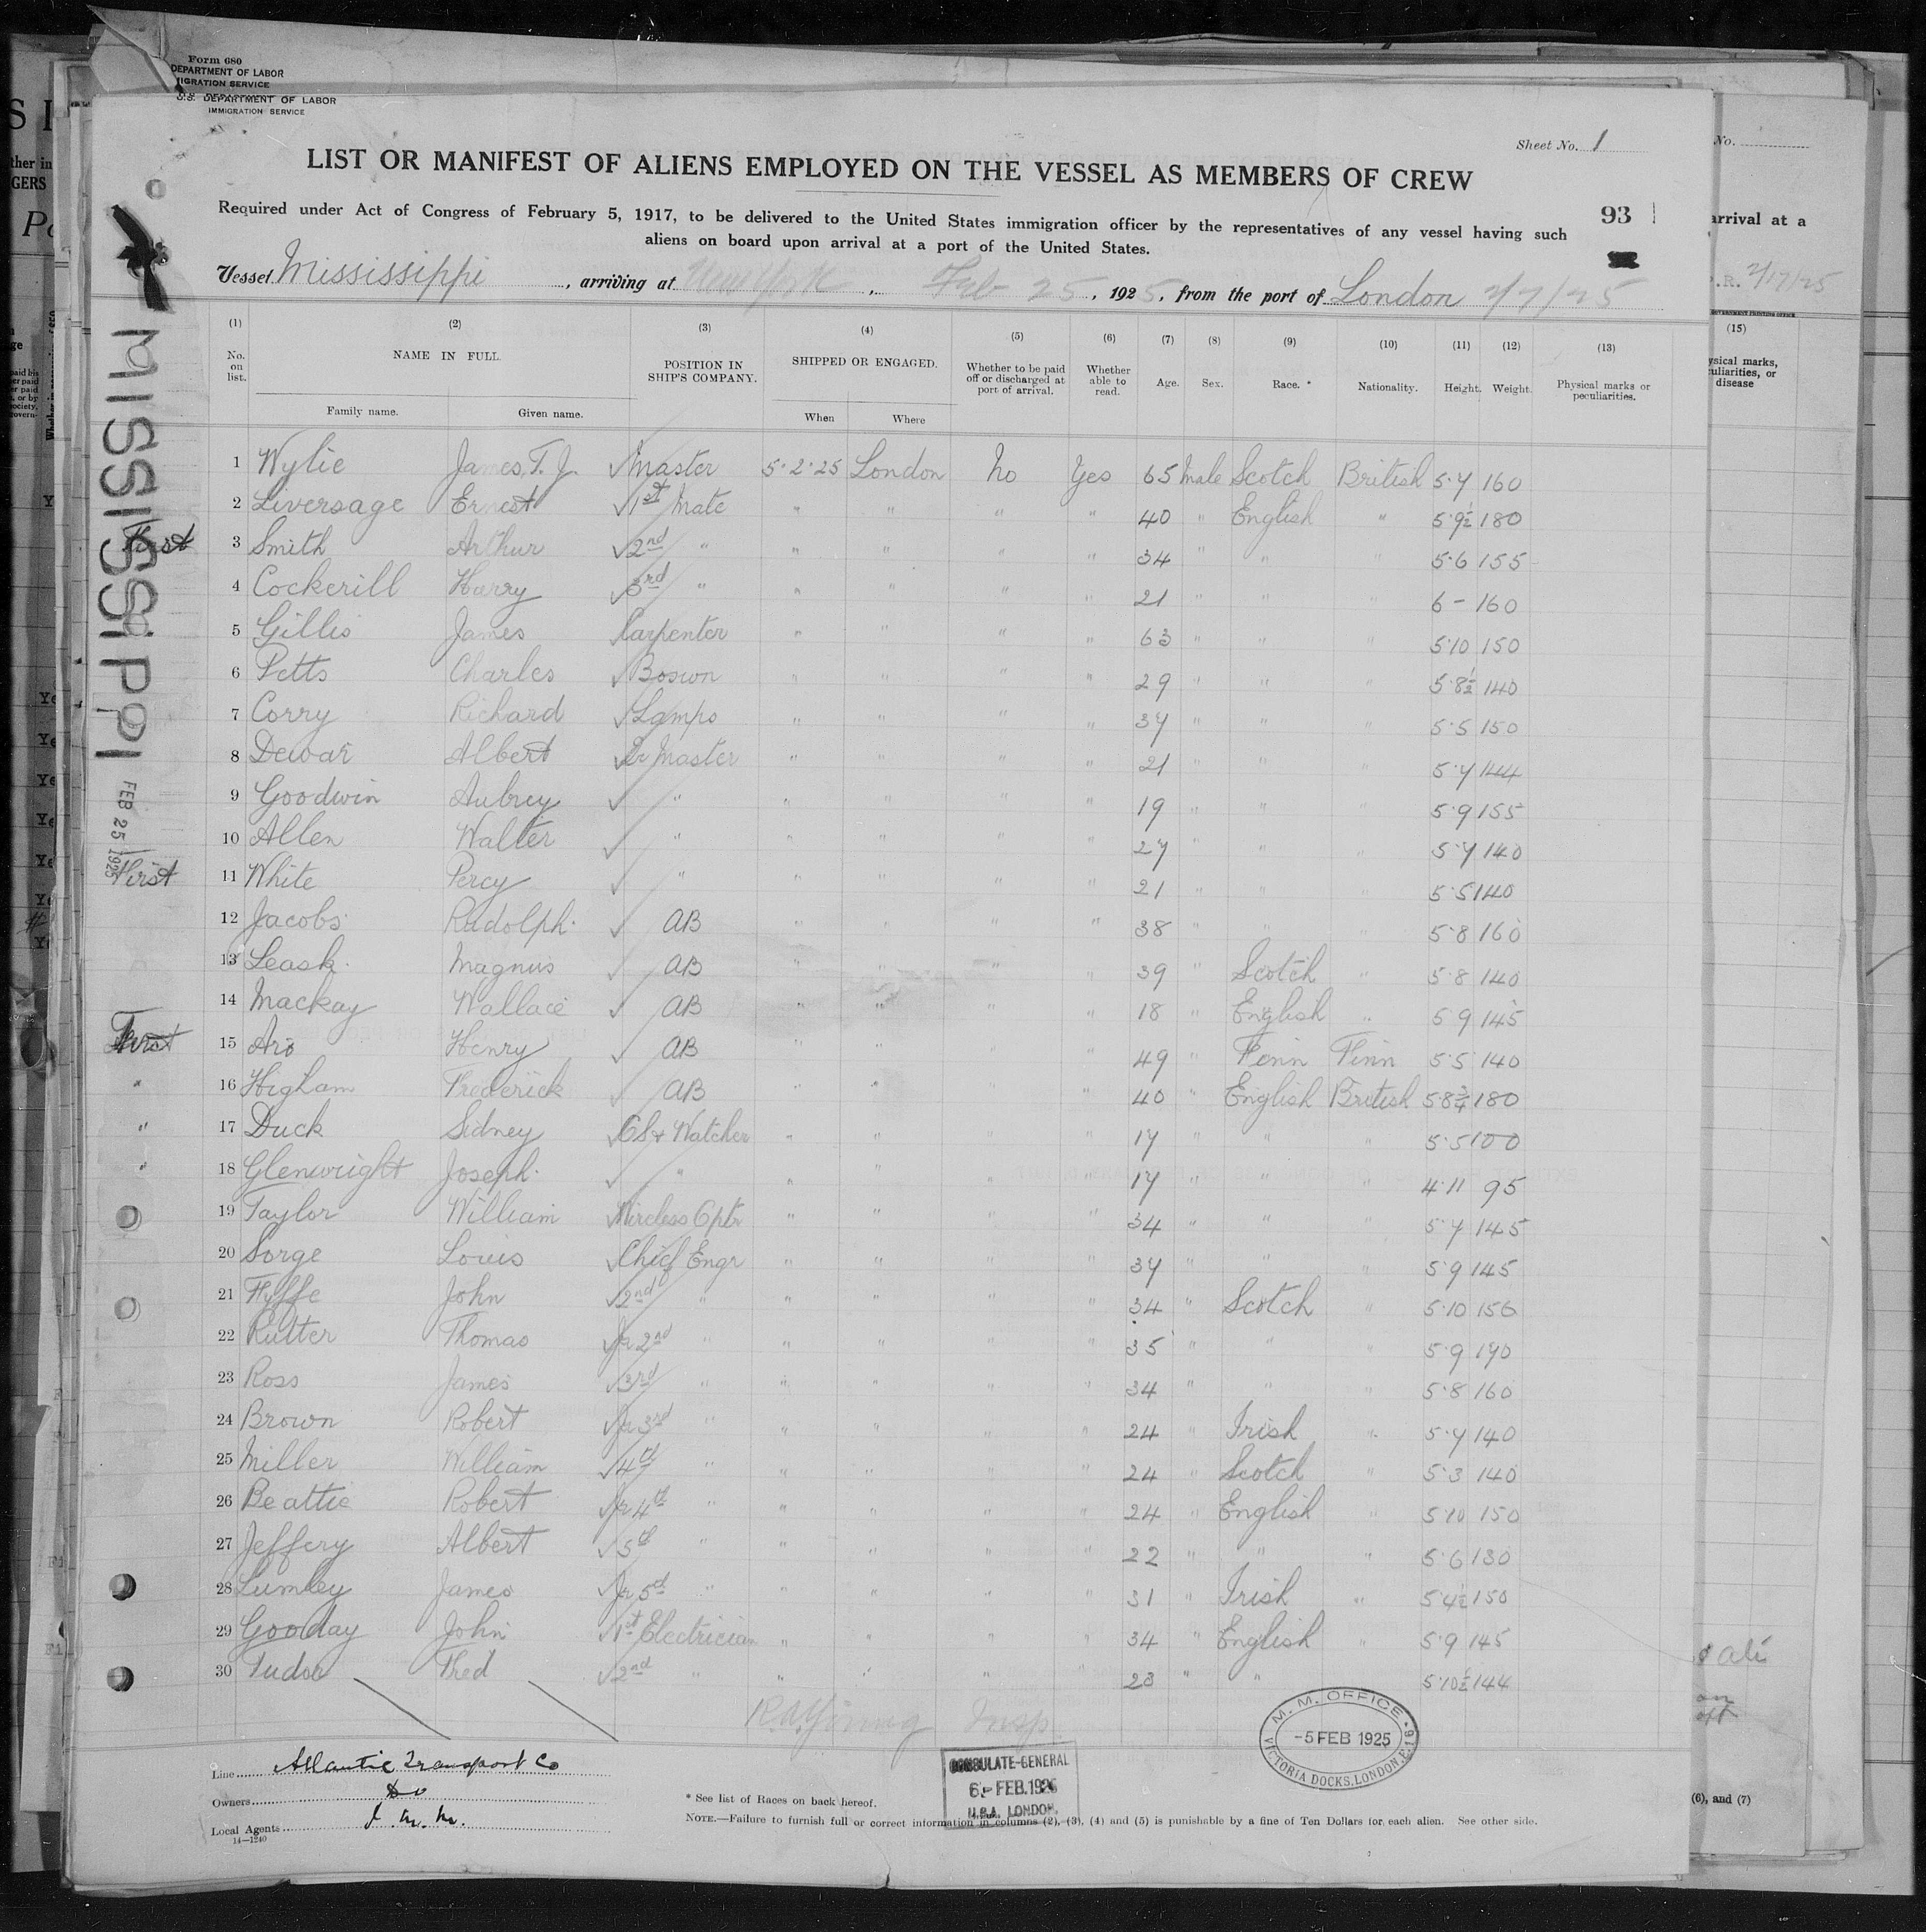 Form 680
DEPARTMENT OF LABOR
MIGRATION SERVICE
U.S. DEPARTMENT OF LABOR
IMMIGRATION SERVICE
Sheet No. 1
LIST OR MANIFEST OF ALIENS EMPLOYED ON THE VESSEL AS MEMBERS OF CREW
Required under Act of Congress of February 5, 1917, to be delivered to the United States immigration officer by the representatives of any vessel having such
aliens on board upon arrival at a port of the United States.
93
Vessel Mississippi, arriving at New York, Feb 25, 1925, from the port of London 2/7/25
(1) (2) (3) (4) (5) (6) (7) (8) (9) (10) (11) (12) (13)
No. on list. NAME IN FULL. POSITION IN SHIP'S COMPANY. SHIPPED OR ENGAGED. Whether to be paid off or discharged at port of arrival. Whether able to read. Age. Sex. Race. * Nationality. Height. Weight. Physical marks or peculiarities.
Family name. Given name. When Where
1 Wylie James, T. J. Master 5·2·25 London No Yes 65 Male Scotch British 5·7 160
2 Liversage Ernest 1st Mate " " " " 40 " English " 5·9½ 180
First 3 Smith Arthur 2nd " " " " " 34 " " " 5·6 155
4 Cockerill Harry 3rd " " " " " 21 " " " 6 – 160
5 Gillis James Carpenter " " " " 63 " " " 5·10 150
6 Petts Charles Boswn " " " " 29 " " " 5·8½ 140
7 Corry Richard Lamps " " " " 37 " " " 5·5 150
8 Dewar Albert Qr Master " " " " 21 " " " 5·7 144
9 Goodwin Aubrey " " " " " 19 " " " 5·9 155
10 Allen Walter " " " " " 27 " " " 5·7 140
First 11 White Percy " " " " " 21 " " " 5·5 140
12 Jacobs Rudolph AB " " " " 38 " " " 5·8 160
13 Leask Magnus AB " " " " 39 " Scotch " 5·8 140
14 Mackay Wallace AB " " " " 18 " English " 5 9 145
First 15 Aro Henry AB " " " " 49 " Finn Finn 5·5 140
" 16 Higham Frederick AB " " " " 40 " English British 5·8¾ 180
" 17 Duck Sidney Watcher " " " " 17 " " " 5·5 100
" 18 Glenwright Joseph " " " " " 17 " " " 4·11 95
19 Taylor William Wireless Optr " " " " 34 " " " 5·7 145
20 Sorge Louis Chief Engr " " " " 37 " " " 5·9 145
21 Fyffe John 2nd " " " " " 34 " Scotch " 5·10 156
22 Rutter Thomas Jr 2nd " " " " " 35 " " " 5·9 190
23 Ross James 3rd " " " " " 34 " " " 5·8 160
24 Brown Robert Jr 3rd " " " " " 24 " Irish " 5·7 140
25 Miller William 4th " " " " " 24 " Scotch " 5·3 140
26 Beattie Robert Jr 4th " " " " " 24 " English " 5·10 150
27 Jeffery Albert 5th " " " " " 22 " " " 5·6 130
28 Lumley James Jr 5th " " " " " 31 " Irish " 5·4½ 150
29 Gooday John 1st Electrician " " " " 34 " English " 5·9 145
30 Tudor Fred 2nd " " " " " 23 " " " 5·10½ 144
R.A. Young Insp.
MISSISSIPPI
FEB 25 1925
M. M. OFFICE
-5 FEB 1925
VICTORIA DOCKS, LONDON. E.16
CONSULATE-GENERAL
6 - FEB. 1925
U.S.A. LONDON.
Line Atlantic Transport Co
Owners Do
Local Agents I. M. M.
14—1240
* See list of Races on back hereof.
NOTE.—Failure to furnish full or correct information in columns (2), (3), (4) and (5) is punishable by a fine of Ten Dollars for each alien. See other side.
No.
arrival at a
2/17/25
(15)
ysical marks,
uliarities, or
disease
(6), and (7)